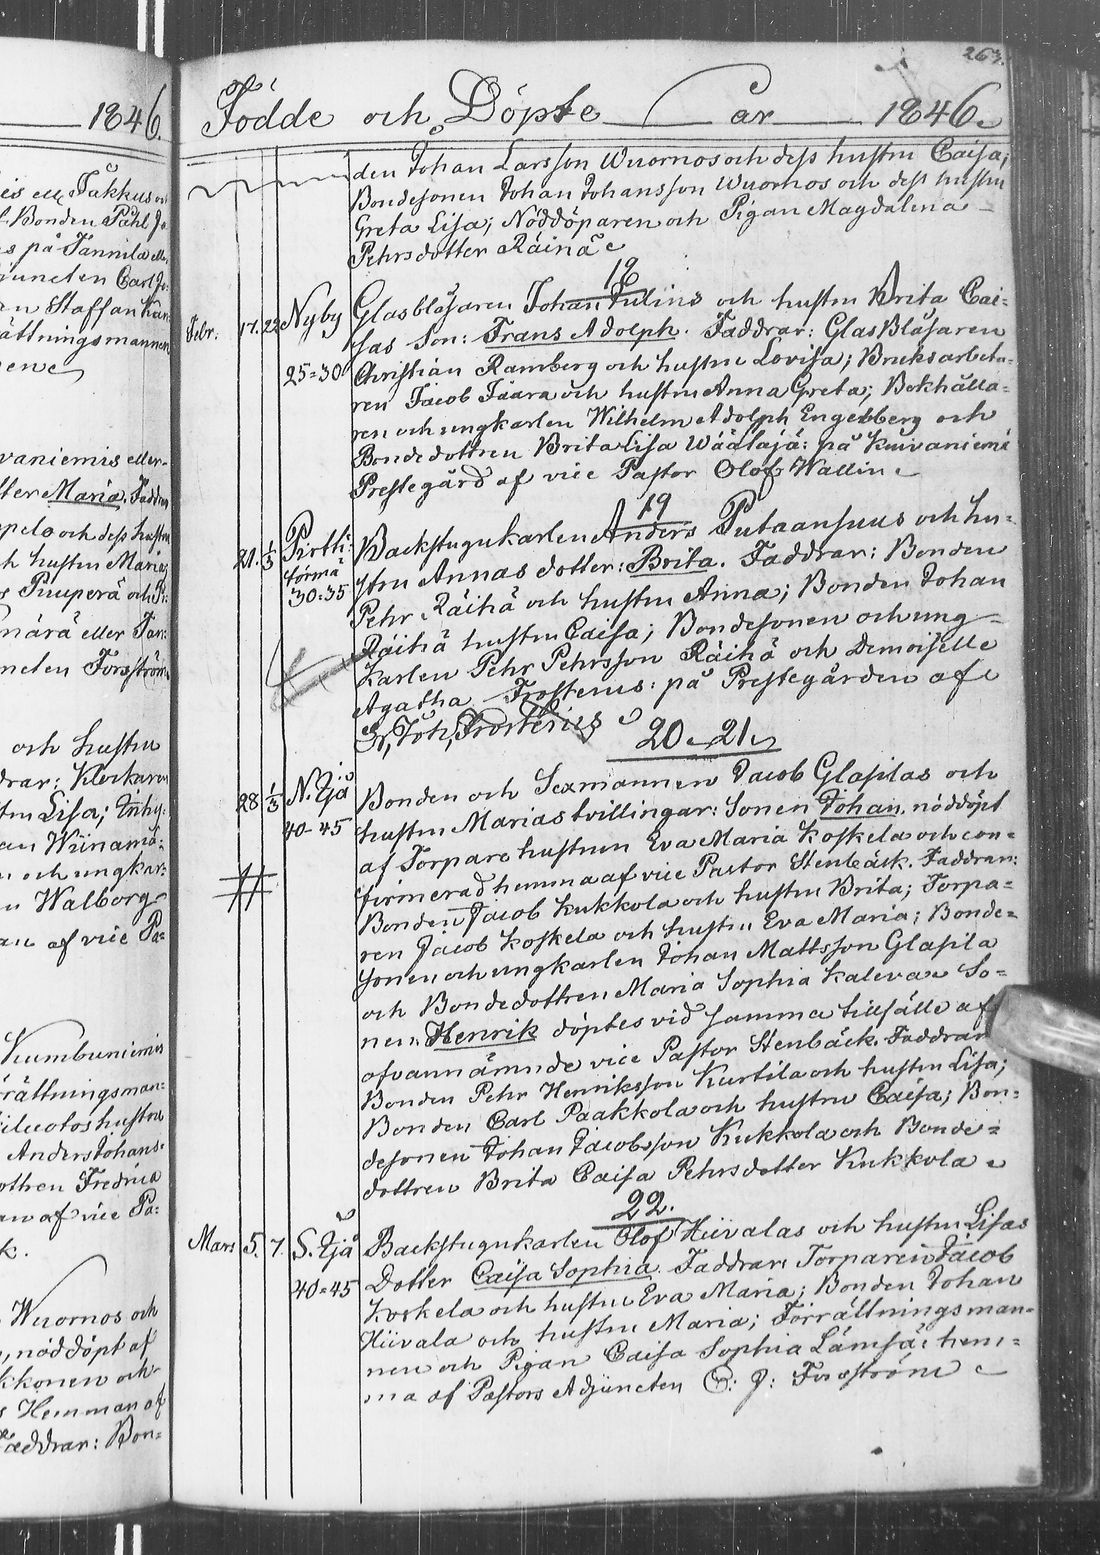 1846.
is ell. Takkus och
Bonden Påhl Jo
s på Tannila ell.
juncten Carl Jo
an Staffan Kan
ättningsmannen
vaniemis eller
ter Maria. Faddra
och dess hustru
h hustru Maria;
Puuperä och Pi
märä eller Tan
ncten Forsström
och hustru
drar: Klockaren
tru Lisa; Inhy
an Wiinamä
n och ungkar
n Walborg
an af vice Pa=
Kumbuniemis
rättningsman=
iluotos hustru
Anders Johans=
ottren Fredrica
an af vice Pa=
k.
Wuornos och
, nöddöpt af
kkonen och
s Hemman af
Faddrar: Bon=
263.
Födde och Döpte år 1846.
den Johan Larsson Wuornos och dess hustru Caisa;
Bondesonen Johan Johansson Wuornos och dess hustru
Greta Lisa; Nöddöparen och Pigan Magdalena
Pehrsdotter Räinä
18
Febr. 17. 22 Nyby Glasblåsaren Johan Julins och hustru Brita Cai=
sas Son: Frans Adolph. Faddrar: Glasblåsaren
25=30 Christian Ramberg och hustru Lovisa; Bruksarbeta=
ren Jacob Jaara och hustru Anna Greta; Bokhålla=
ren och ungkarlen Wilhelm Adolph Engelberg och
Bondedottren Brita Lisa Wäätäjä: på Kuivaniemi
Prestegård af vice Pastor Olof Wallin
19
21. 1/3 Pirtti= Backstugukarlen Anders Putaansuus och hu=
törmä stru Annas dotter: Brita. Faddrar: Bonden
30=35 Pehr Räihä och hustru Anna; Bonden Johan
Räihä hustru Caisa; Bondesonen och ung
karlen Pehr Pehrsson Räihä och Demoiselle
Agatha Frosterus: på Prestegården af
Joh, Frosterus
20. 21.
28 1/3 N. Ijå Bonden och Sexmannen Jacob Glasilas och
40-45 hustru Marias tvillingar: Sonen Johan, nöddöpt
af Torpare hustrun Eva Maria Koskela och con=
firmerad hemma af vice Pastor Stenbäck. Faddrar:
Bonden Jacob Kukkola och hustru Brita; Torpa=
ren Jacob Koskela och hustru Eva Maria; Bonde=
sonen och ungkarlen Johan Mattsson Glasila
och Bondedottren Maria Sophia Kaleva. So=
nen: Henrik döptes vid samma tillfälle af
ofvannämnde vice Pastor Stenbäck. Faddrar
Bonden Pehr Henriksson Kurtila och hustru Lisa;
Bonden Carl Paakkola och hustru Caisa; Bon=
desonen Johan Jacobsson Kukkola och Bonde=
dottren Brita Caisa Pehrsdotter Kukkola
22.
Mars 5. 7. S. Ijå Backstugukarlen Olof Hiivalas och hustru Lisas
40=45 Dotter Caisa Sophia. Faddrar: Torparen Jacob
Koskela och hustru Eva Maria; Bonden Johan
Hiivala och hustru Maria; Förrättningsman=
nen och Pigan Caisa Sophia Lämsä: hem=
ma af Pastors Adjuncten C: J: Forsström